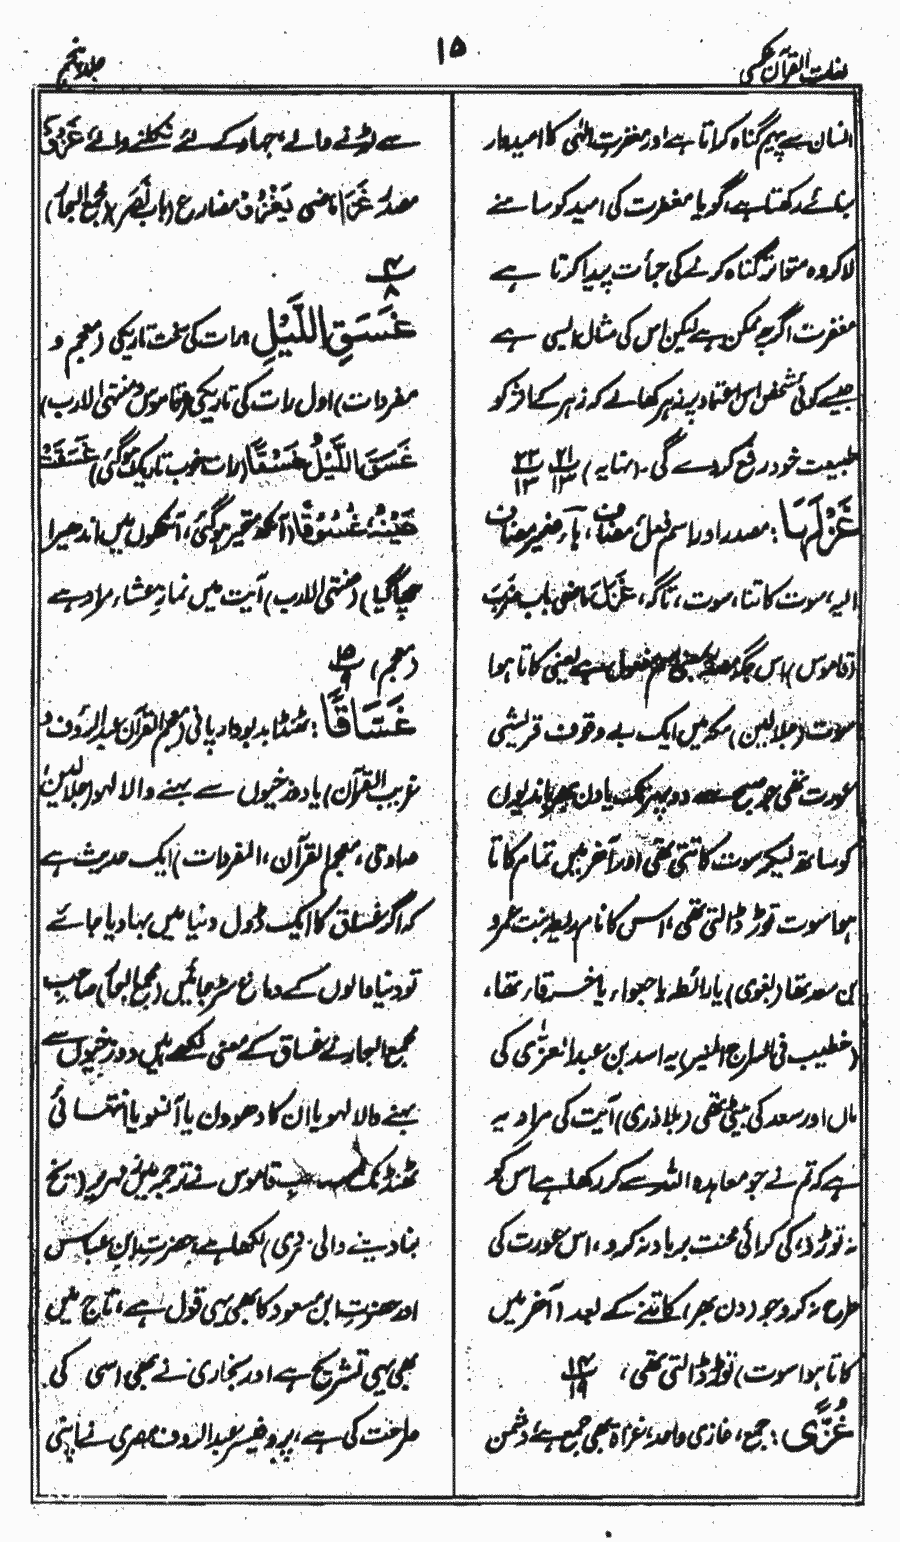 لغات القرآن عکسی
۱۵
جلد پنجم
انسان سے پیہم گناہ کراتا ہے اور مغفرت الٰہی کا امیدوار
بنائے رکھتا ہے، گویا مغفرت کی امید کو سامنے
لاکر وہ متواتر گناہ کرنے کی جرأت پیدا کرتا ہے
مغفرت اگرچہ ممکن ہے لیکن اس کی مثال ایسی ہے
جیسے کوئی شخص اس اعتماد پر زہر کھالے کہ زہر کے اثر کو
طبیعت خود دفع کردے گی۔ (نہایہ) ۲۱/۱۳ ۲۲/۱۳
غَزْلَهَا: مصدر اور اسم فعل مضاف، ہا ضمیر مضاف
الیہ، سوت کاتنا، سوت، تاگہ، غَزَلَ ماضی باب ضرب
(قاموس) اس جگہ مصدر بمعنی اسم مفعول ہے یعنی کاتا ہوا
سوت (جلالین) مکہ میں ایک بے وقوف قریشی
عورت تھی جو صبح سے دوپہر تک یا دن بھر باندیوں
کو ساتھ لیکر سوت کاتتی تھی اور آخر میں تمام کاتا
ہوا سوت توڑ ڈالتی تھی، اس کا نام ریطہ بنت عمرو
بن سعد تھا (بغوی) یا رائطہ یا حبواء یا خرقاء تھا،
(خطیب فی السراج المنیر) یہ اسد بن عبد العزّٰی کی
ماں اور سعد کی بیٹی تھی (بلاذری) آیت کی مراد یہ
ہے کہ تم نے جو معاہدہ اللہ سے کر رکھا ہے اس کو
نہ توڑو، کی کرائی محنت برباد نہ کرو، اس عورت کی
طرح نہ کرو جو (دن بھر) کاتنے کے بعد (آخر میں
کاتا ہوا سوت) توڑ ڈالتی تھی، ۱۴/۱۹
غُزًّى: جمع، غازی واحد، غزاۃ بھی جمع ہے، دشمن
سے لڑنے والے جہاد کے لئے نکلنے والے غَزْوٌ
مصدر غَزَا ماضی یَغْزُوْ مضارع (باب نَصَرَ) (مجمع البحار)
۴/۸
غَسَقِ اللَّيْلِ رات کی سخت تاریکی (معجم و
مفردات) اول رات کی تاریکی (قاموس و منتہی الارب)
غَسَقَ اللَّيْلُ غَسَقًا (رات خوب تاریک ہوگئی) غَسَقَتْ
عَيْنُهُ غُسُوْقًا (آنکھ متحیر ہوگئی، آنکھوں میں اندھیرا
چھاگیا) (منتہی الارب) آیت میں نماز عشاء مراد ہے
(معجم) ۱۵/۹
غَسَّاقًا: ٹھنڈا بدبودار پانی (معجم القرآن عبدالرؤف و
غریب القرآن) یا دوزخیوں سے بہنے والا لہو (جلالین،
صاوی، معجم القرآن، المفردات) ایک حدیث ہے
کہ اگر غساق کا ایک ڈول دنیا میں بہا دیا جائے
تو دنیا والوں کے دماغ سڑ جائیں (مجمع البحار) صاحب
مجمع البحار نے غساق کے معنی لکھے ہیں دوزخیوں سے
بہنے والا لہو یا ان کا دھوون یا آنسو یا انتہائی
ٹھنڈک قاموس نے ترجمہ میں زمہریر (یخ
بنادینے والی سردی) لکھا ہے، حضرت ابن عباس
اور حضرت ابن مسعود کا بھی یہی قول ہے، تاج میں
بھی یہی تشریح ہے اور بخاری نے بھی اسی کی
صراحت کی ہے، پروفیسر عبدالرؤف مصری نے اپنی